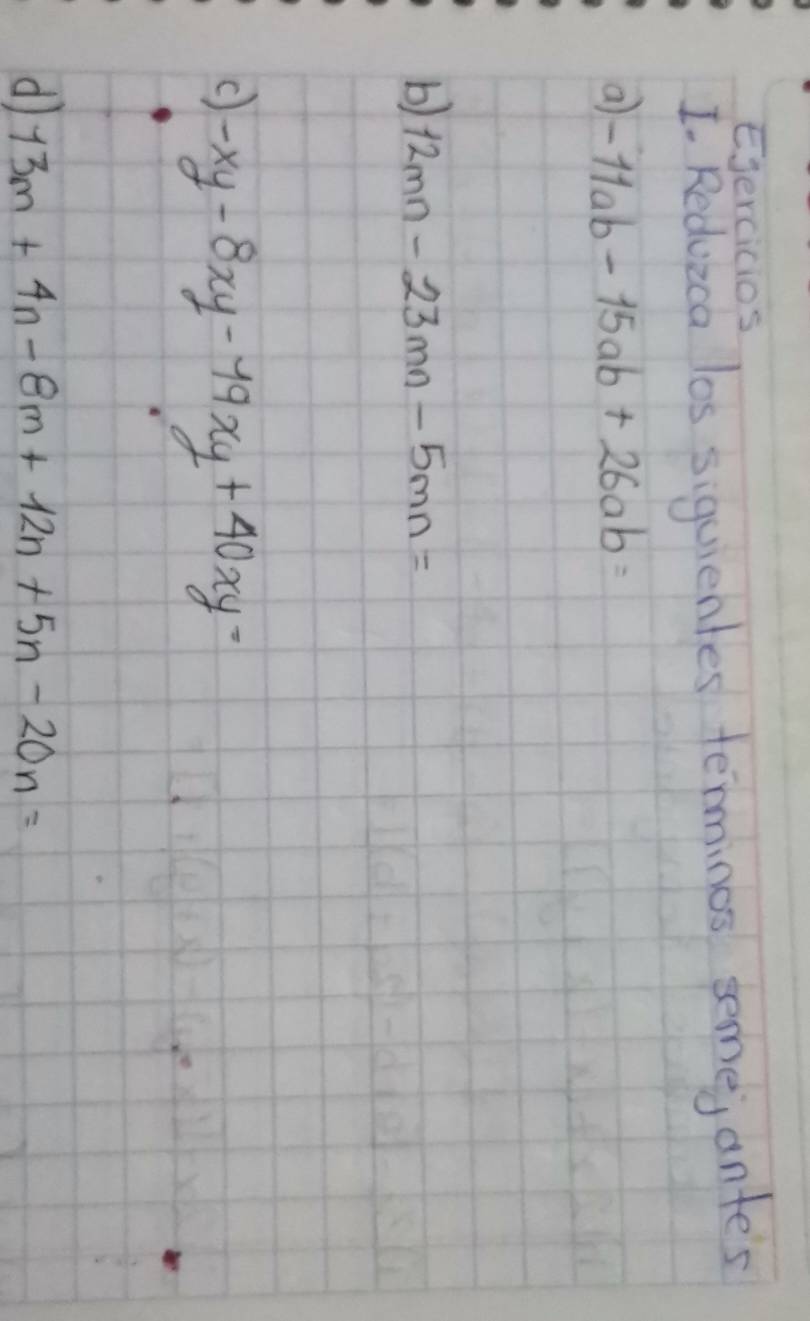 Ejercicios
I. Reduzca los siguientes términos semejantes
a) -11ab - 15ab + 26ab =
b) 12mn - 23mn - 5mn =
c) -xy - 8xy - 19xy + 40xy =
d) 13m + 4n - 8m + 12n + 5n - 20n =